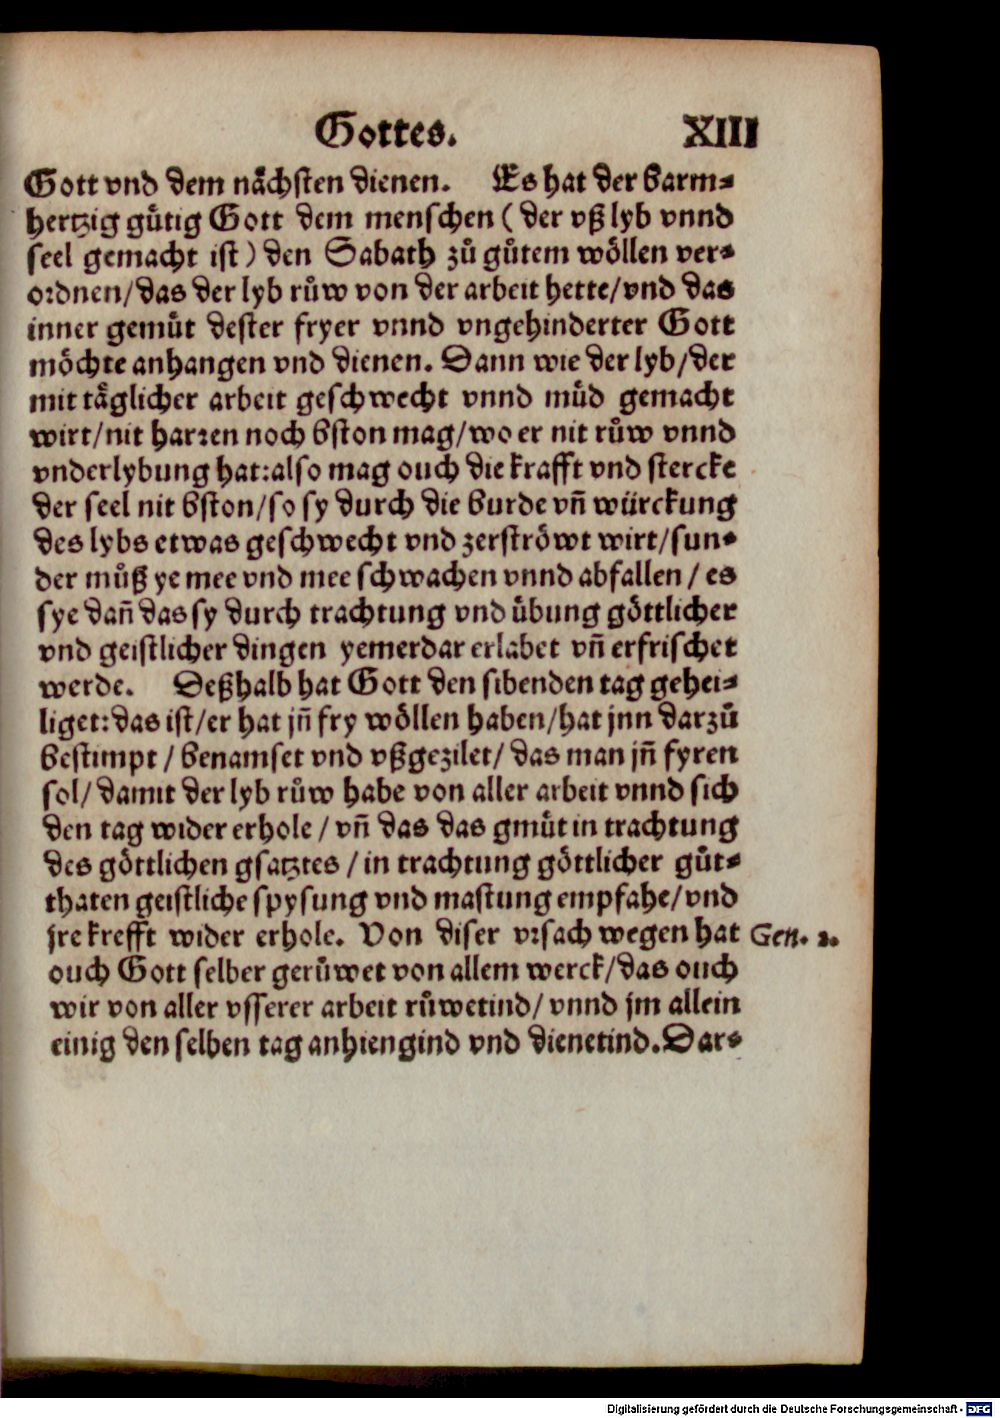 Gottes. XIII
Gott vnd dem nåchsten dienen. Es hat der barm⸗
hertzig gütig Gott dem menschen ( der vß lyb vnnd
seel gemacht ist ) den Sabath zů gůtem wöllen ver⸗
ordnen/das der lyb růw von der arbeit hette/vnd das
inner gemüt dester fryer vnnd vngehinderter Gott
möchte anhangen vnd dienen. Dann wie der lyb/der
mit tåglicher arbeit geschwecht vnnd müd gemacht
wirt/nit harren noch bston mag/wo er nit růw vnnd
vnderlybung hat:also mag ouch die krafft vnd stercke
der seel nit bston/so sy durch die burde vñ würckung
des lybs etwas geschwecht vnd zerströwt wirt/sun⸗
der můß ye mee vnd mee schwachen vnnd abfallen / es
sye dañ das sy durch trachtung vnd übung göttlicher
vnd geistlicher dingen yemerdar erlabet vñ erfrischet
werde. Deßhalb hat Gott den sibenden tag gehei⸗
liget:das ist/er hat jñ fry wöllen haben/hat jnn darzů
bestimpt / benamset vnd vßgezilet/ das man jñ fyren
sol/ damit der lyb růw habe von aller arbeit vnnd sich
den tag wider erhole / vñ das das gmüt in trachtung
des göttlichen gsatztes / in trachtung göttlicher gůt⸗
thaten geistliche spysung vnd mastung empfahe/vnd
jre krefft wider erhole. Von diser vrsach wegen hat Gen. 2.
ouch Gott selber gerůwet von allem werck/das ouch
wir von aller vsserer arbeit růwetind/ vnnd jm allein
einig den selben tag anhiengind vnd dienetind.Dar⸗
Digitalisierung gefördert durch die Deutsche Forschungsgemeinschaft - DFG